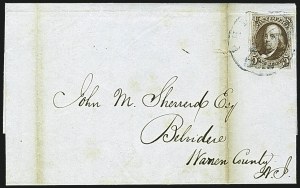 John M. Sherrerd Esq
Belvidere
Warren County
N.J.